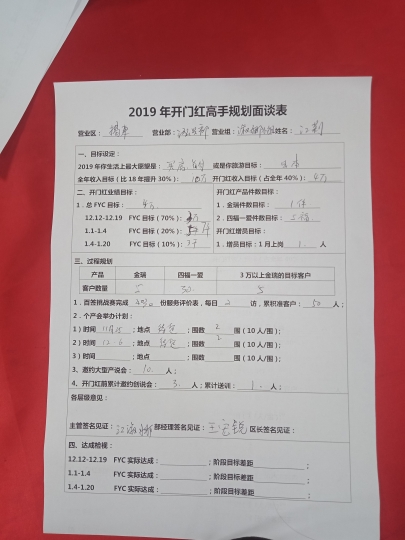 2019年开门红高手规划面谈表
营业区： 营业部： 营业组： 姓名：江荆
一、目标设定：
2019年你生活上最大愿望是： 或是你旅游目标：日本
全年收入目标（比18年提升30%）：10万 开门红收入目标（占全年40%）：4万
二、开门红业绩目标： 开门红产品件数目标：
1．总FYC目标：4万 1．金瑞件数目标：1件
12.12-12.19 FYC目标（70%）： 2．四福一爱件数目标：
1.1-1.4 FYC目标（20%）： 开门红增员目标：
1.4-1.20 FYC目标（10%）： 1．增员目标：1月上岗 1. 人
三、过程规划
产品 金瑞 四福一爱 3万以上金瑞的目标客户
客户数量 30 5
1．百答挑战赛完成 份服务评价表，每日 2 访，累积准客户：50 人；
2．个产会举办计划：
1)时间 11月25 ；地点 ；围数 2 围（10人/围）；
2)时间 12.6 ；地点 ；围数 2 围（10人/围）；
3)时间 ；地点 ；围数 围（10人/围）；
3、邀约大型产说会：10. 人；
4、开门红前累计邀约创说会：3. 人；累计送训：1. 人；
各层级意见：
主管签名见证： 部经理签名见证： 区长签名见证：
四、达成检视：
12.12-12.19 FYC实际达成： ；阶段目标差距 ；
1.1-1.4 FYC实际达成： ；阶段目标差距 ；
1.4-1.20 FYC实际达成： ；阶段目标差距 ；